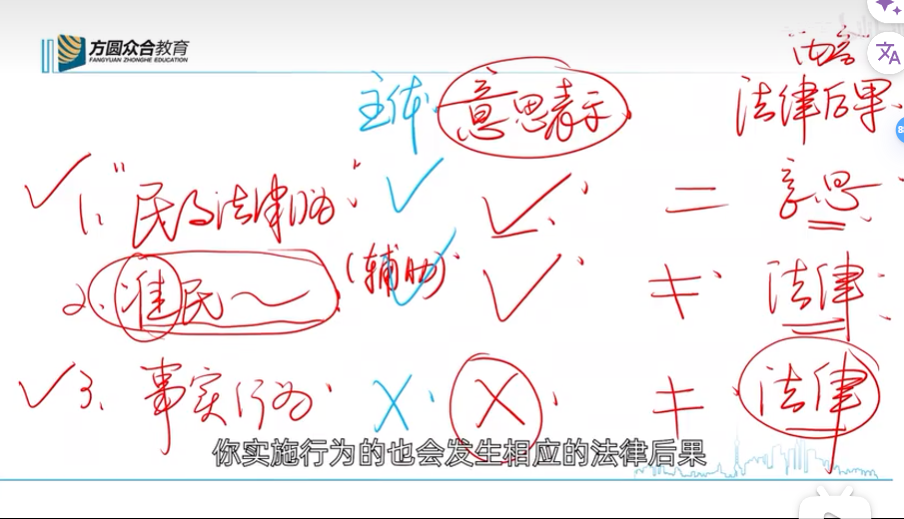 方圆众合教育
FANGYUAN ZHONGHE EDUCATION
内容
主体 意思表示 法律后果
✓ 1、"民事法律行为" ✓ ✓ = 意思
2、准民~ (辅助) ✓ ✓ ≠ 法律
✓ 3、事实行为 × × ≠ 法律
你实施行为的也会发生相应的法律后果